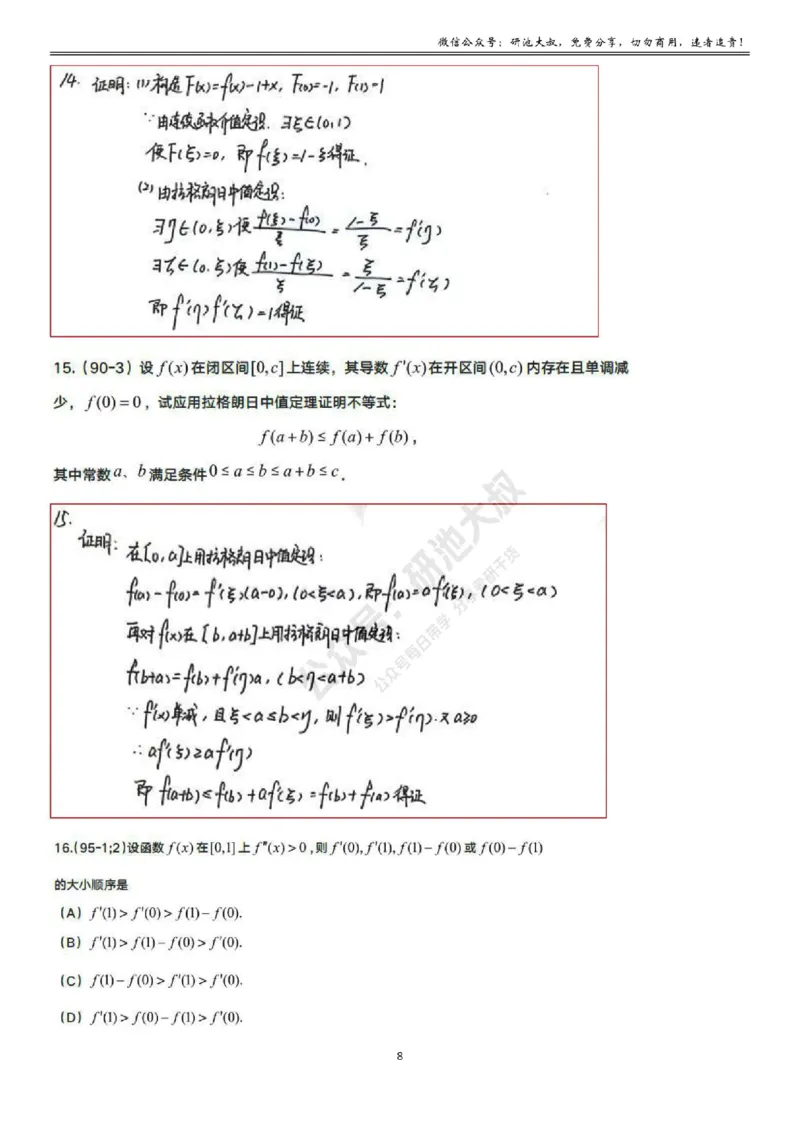 微信公众号：研池大叔，免费分享，切勿商用，违者追责！
14. 证明：(1) 构造F(x)=f(x)-1+x, F(0)=-1, F(1)=1
∵由连续函数介值定理，∃ξ∈(0,1)
使F(ξ)=0，即f(ξ)=1-ξ得证.
(2) 由拉格朗日中值定理：
∃η∈(0,ξ)使 (f(ξ)-f(0))/ξ = (1-ξ)/ξ = f'(η)
∃ζ∈(0.ξ)使 (f(1)-f(ξ))/ξ = ξ/(1-ξ) = f'(ζ)
即f'(η)f'(ζ)=1得证
15.（90-3）设 f(x)在闭区间[0,c]上连续，其导数 f'(x)在开区间(0,c)内存在且单调减
少， f(0)=0，试应用拉格朗日中值定理证明不等式：
f(a+b)≤f(a)+f(b)，
其中常数a、b满足条件0≤a≤b≤a+b≤c．
15.
证明：在[0,a]上用拉格朗日中值定理：
f(a)-f(0)=f'(ξ)(a-0),(0<ξ<a),即f(a)=af'(ξ),(0<ξ<a)
再对f(x)在[b,a+b]上用拉格朗日中值定理：
f(b+a)=f(b)+f'(η)a,(b<η<a+b)
∵f'(x)单减，且ξ<a≤b<η，则f'(ξ)>f'(η).又a≥0
∴af'(ξ)≥af'(η)
即f(a+b)≤f(b)+af'(ξ)=f(b)+f(a)得证
公众号：研池大叔
公众号每日带学 分享考研干货
16.(95-1;2)设函数 f(x)在[0,1]上 f″(x)>0 ,则 f'(0),f'(1),f(1)-f(0)或 f(0)-f(1)
的大小顺序是
（A）f'(1)>f'(0)>f(1)-f(0).
（B）f'(1)>f(1)-f(0)>f'(0).
（C）f(1)-f(0)>f'(1)>f'(0).
（D）f'(1)>f(0)-f(1)>f'(0).
8